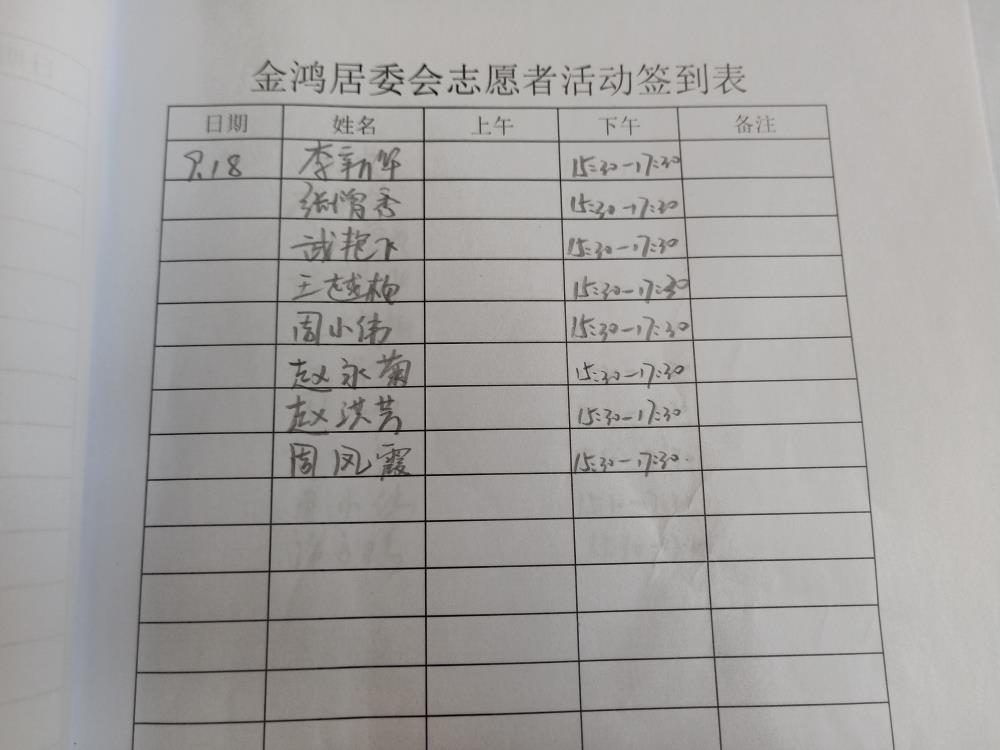 金鸿居委会志愿者活动签到表
日期 姓名 上午 下午 备注
9.18 李新华 15:30-17:30
张增秀 15:30-17:30
武艳飞 15:30-17:30
王越梅 15:30-17:30
周小伟 15:30-17:30
赵永菊 15:30-17:30
赵洪芳 15:30-17:30
周凤霞 15:30-17:30